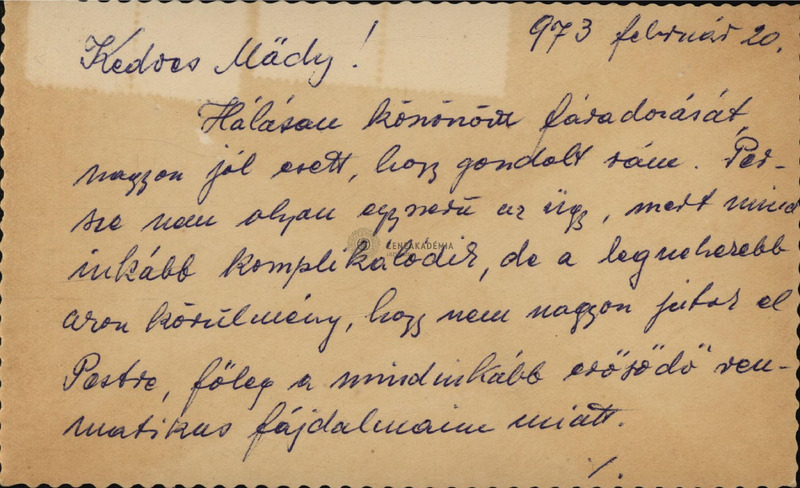 973 február 20.
Kedves Mády!
Hálásan köszönöm fáradozását,
nagyon jól esett, hogy gondolt rám. Per-
sze nem olyan egyszerű az ügy, mert mind
inkább komplikálódik, de a legnehezebb
azon körülmény, hogy nem nagyon jutok el
Pestre, főleg a mindinkább erősödő reu-
matikus fájdalmaim miatt.
./.
ZENEAKADÉMIA